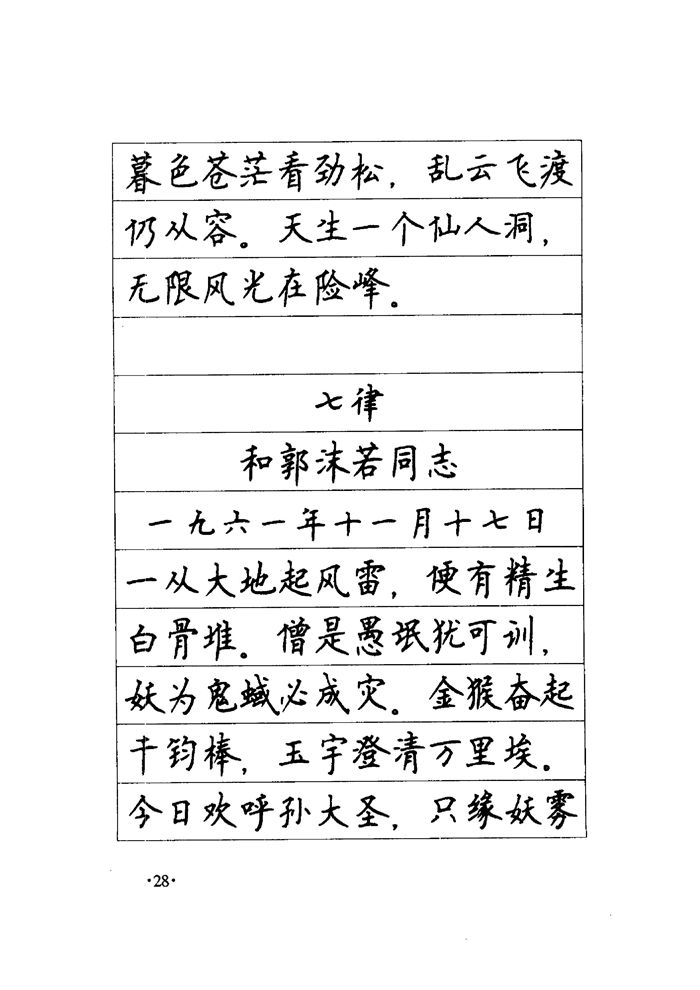 暮色苍茫看劲松，乱云飞渡
仍从容。天生一个仙人洞，
无限风光在险峰。
七律
和郭沫若同志
一九六一年十一月十七日
一从大地起风雷，便有精生
白骨堆。僧是愚氓犹可训，
妖为鬼蜮必成灾。金猴奋起
千钧棒，玉宇澄清万里埃。
今日欢呼孙大圣，只缘妖雾
·28·